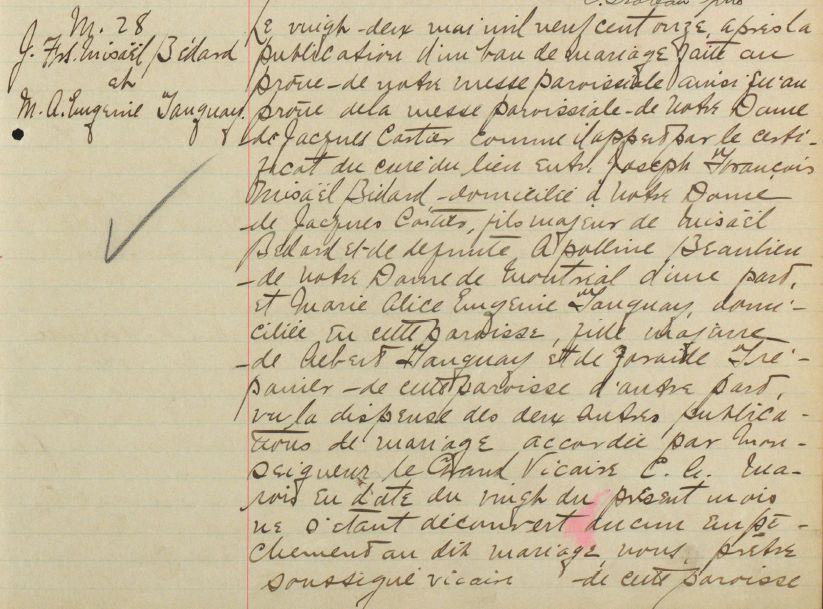 M. 28
J. Frs. Misaël Bédard
et
M. A. Eugenie Tanguay.
Le vingt-deux mai mil neuf cent onze, après la
publication d'un ban de mariage faite au
prône de notre messe paroissiale ainsi qu'au
prône de la messe paroissiale de Notre Dame
de Jacques Cartier comme il appert par le certi-
ficat du curé du lieu entre Joseph François
Misaël Bédard domicilié à Notre Dame
de Jacques Cartier, fils majeur de Misaël
Bédard et de defunte Apolline Beaulieu
de Notre Dame de Montréal d'une part,
et Marie Alice Eugenie Tanguay, domi-
ciliée en cette paroisse, fille majeure
de Albert Tanguay et de Zoraide Tré-
panier de cette paroisse d'autre part,
vu la dispense des deux autres publica-
tions de mariage accordée par Mon-
seigneur le Grand Vicaire C. A. Ma-
rois en date du vingt du présent mois
ne s'étant découvert aucun empê-
chement au dit mariage, nous, prêtre
soussigné vicaire de cette paroisse